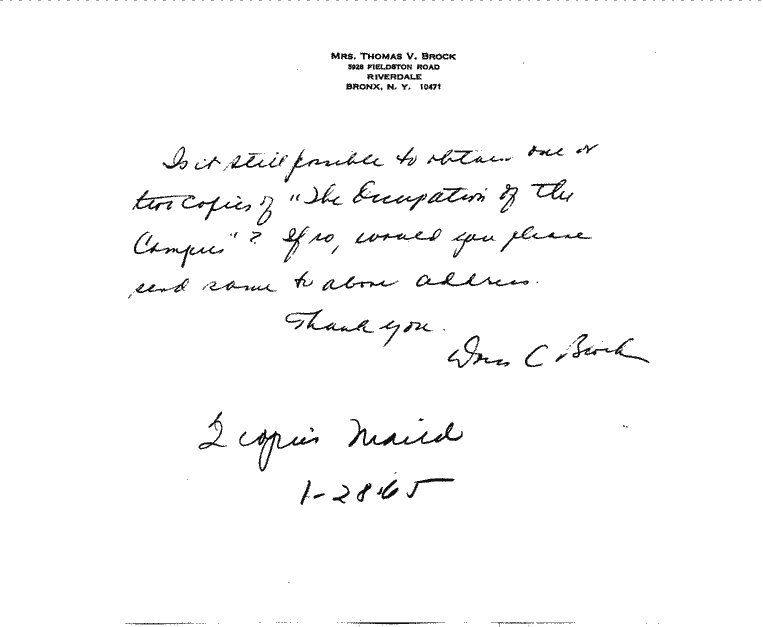 MRS. THOMAS V. BROCK
5928 FIELDSTON ROAD
RIVERDALE
BRONX, N. Y. 10471
Is it still possible to obtain one or
two copies of "The Occupation of the
Campus"? If so, would you please
send same to above address.
Thank you.
Doris C Brock
2 copies Mailed
1-28-65